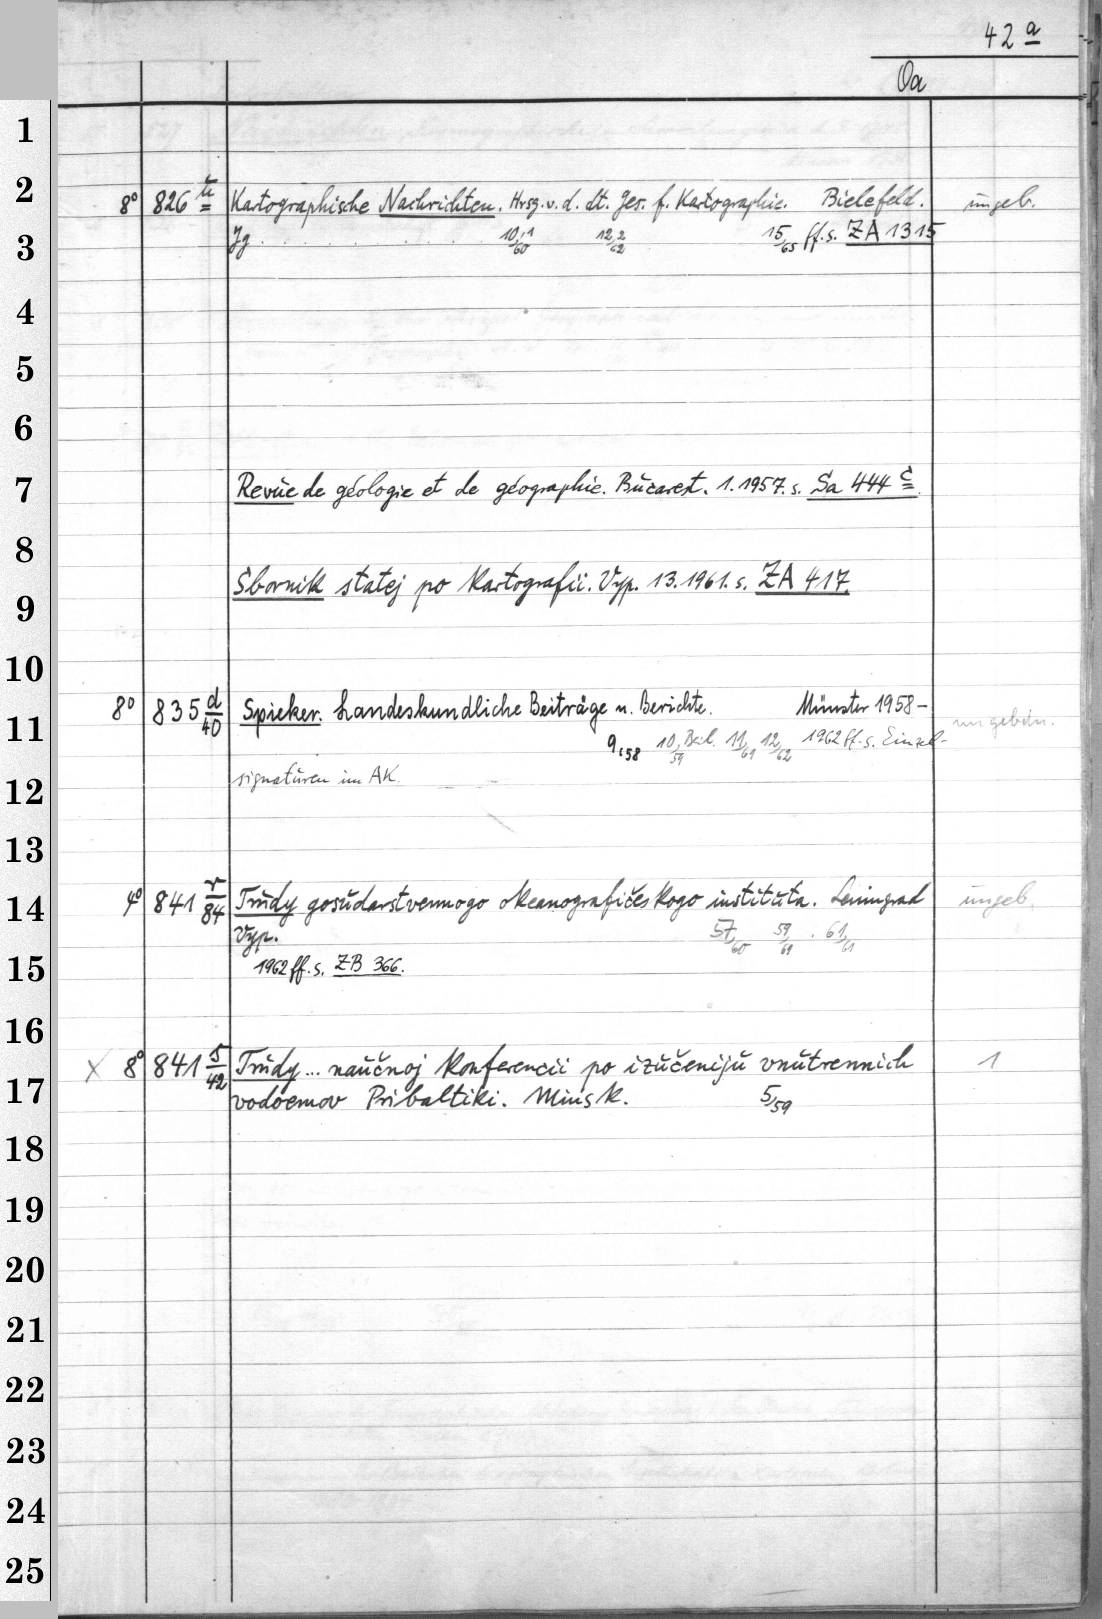 42 a
Oa
1
2
8° 826 ü Kartographische Nachrichten. Hrsg. v. d. dt. Ges. f. Kartographie. Bielefeld. ungeb.
3
Jg. . . . . . . . . . . . 10,1/60 12,2/62 15/65 ff. s. ZA 1315
4
5
6
7
Revue de géologie et de géographie. Bucarest. 1.1957. s. Sa 444 c
8
Sbornik statej po kartografii. Vyp. 13.1961. s. ZA 417.
9
10
8° 835 d/40 Spieker. Landeskundliche Beiträge u. Berichte. Münster 1958– ungebdn.
11
9,58 10/59 Beil. 11/61 12/62 1962 ff. s. Einzel-
12
signaturen im AK.
13
4° 841 r/84 Trudy gosudarstvennogo okeanografičeskogo instituta. Leningrad ungeb.
14
Vyp. 57/60 59/61 . 61/61
15
1962 ff. s. ZB 366.
16
X 8° 841 5/42 Trudy ... naučnoj konferencii po izučeniju vnutrennich 1
17
vodoemov Pribaltiki. Minsk. 5/59
18
19
20
21
22
23
24
25